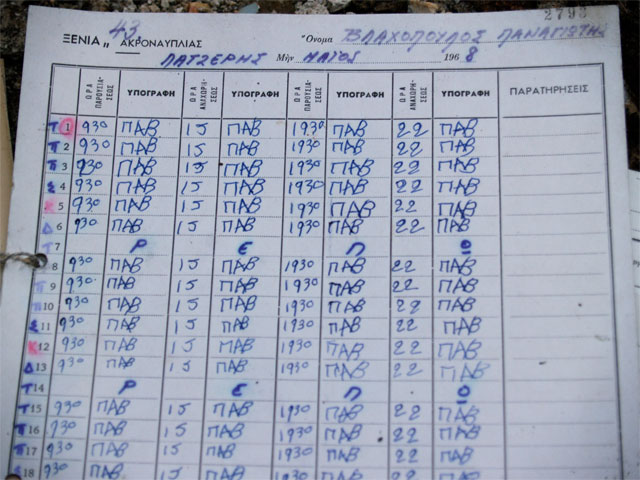 2793
43
ΞΕΝΙΑ „ ΑΚΡΟΝΑΥΠΛΙΑΣ Ὄνομα ΒΛΑΧΟΠΟΥΛΟΣ ΠΑΝΑΓΙΩΤΗΣ
ΛΑΤΖΕΡΗΣ Μὴν ΜΑΪΟΣ 1968
ΩΡΑ ΠΑΡΟΥΣΙΑΣΕΩΣ ΥΠΟΓΡΑΦΗ ΩΡΑ ΑΝΑΧΩΡΗΣΕΩΣ ΥΠΟΓΡΑΦΗ ΩΡΑ ΠΑΡΟΥΣΙΑΣΕΩΣ ΥΠΟΓΡΑΦΗ ΩΡΑ ΑΝΑΧΩΡΗΣΕΩΣ ΥΠΟΓΡΑΦΗ ΠΑΡΑΤΗΡΗΣΕΙΣ
Τ 1 930 ΠΑΒ 15 ΠΑΒ 1930 ΠΑΒ 22 ΠΑΒ
Π 2 930 ΠΑΒ 15 ΠΑΒ 1930 ΠΑΒ 22 ΠΑΒ
Π 3 930 ΠΑΒ 15 ΠΑΒ 1930 ΠΑΒ 22 ΠΑΒ
Σ 4 930 ΠΑΒ 15 ΠΑΒ 1930 ΠΑΒ 22 ΠΑΒ
Κ 5 930 ΠΑΒ 15 ΠΑΒ 1930 ΠΑΒ 22 ΠΑΒ
Δ 6 930 ΠΑΒ 15 ΠΑΒ 1930 ΠΑΒ 22 ΠΑΒ
Τ 7 Ρ Ε Π Ο
8 930 ΠΑΒ 15 ΠΑΒ 1930 ΠΑΒ 22 ΠΑΒ
Π 9 930 ΠΑΒ 15 ΠΑΒ 1930 ΠΑΒ 22 ΠΑΒ
Π 10 930 ΠΑΒ 15 ΠΑΒ 1930 ΠΑΒ 22 ΠΑΒ
Σ 11 930 ΠΑΒ 15 ΠΑΒ 1930 ΠΑΒ 22 ΠΑΒ
Κ 12 930 ΠΑΒ 15 ΠΑΒ 1930 ΠΑΒ 22 ΠΑΒ
Δ 13 930 ΠΑΒ 15 ΠΑΒ 1930 ΠΑΒ 22 ΠΑΒ
Τ 14 Ρ Ε Π Ο
Τ 15 930 ΠΑΒ 15 ΠΑΒ 1930 ΠΑΒ 22 ΠΑΒ
Π 16 930 ΠΑΒ 15 ΠΑΒ 1930 ΠΑΒ 22 ΠΑΒ
Π 17 930 ΠΑΒ 15 ΠΑΒ 1930 ΠΑΒ 22 ΠΑΒ
Σ 18 930 ΠΑΒ 15 ΠΑΒ 1930 ΠΑΒ 22 ΠΑΒ